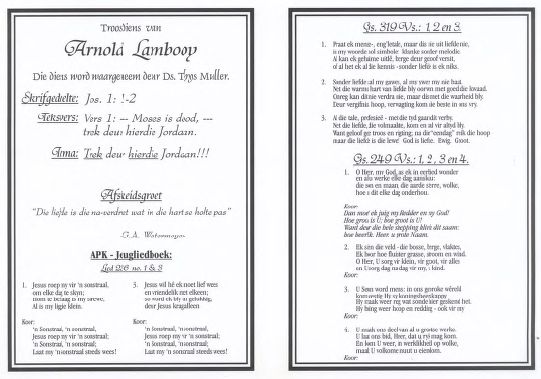 Troosdiens van
Arnold Lambooy
Die diens word waargeneem deur Ds. Thys Muller.
Skrifgedeelte: Jos. 1: 1-2
Teksvers: Vers 1: --- Moses is dood, ---
trek deur hierdie Jordaan.
Tema: Trek deur hierdie Jordaan!!!
Afskeidsgroet
"Die liefde is die na-verdriet wat in die hart se holte pas"
-G.A. Watermeyer-
APK - Jeugliedboek:
Lied 226 no. 1 & 3
1. Jesus roep my vir 'n sonstraal,
om elke dag te skyn;
Al is my ligie klein.
Koor:
'n Sonstraal, 'n sonstraal,
Jesus roep my vir 'n sonstraal;
'n Sonstraal, 'n sonstraal;
Laat my 'n sonstraal steeds wees!
3. Jesus wil hê ek moet lief wees
en vriendelik net elkeen;
so word ek bly en gelukkig,
deur Jesus kragalleen
Koor:
'n Sonstraal, 'n sonstraal,
Jesus roep my vir 'n sonstraal;
'n Sonstraal, 'n sonstraal;
Laat my 'n sonstraal steeds wees!
Gs. 319 Vs.: 1, 2 en 3.
1. Praat ek mense-, engletale, maar dis nie uit liefde nie,
is my woorde sol simbole: klanke sonder melodie
Al kan ek geheime uitlê, berge deur geloof versit,
of al het ek al die kennis - sonder liefde is ek niks.
2. Sonder liefde: al my gawes, al my ywer my nie baat
Net die warmte hart van liefde bly oorwin met goed die kwaad.
Onreg kan dit nie verdra nie, maar dis met die waarheid bly.
Deur vergifnis hoop, vertraging kom die beste in ons vry.
3. Al die tale, profesieë - met die tyd gaan dit verby.
Net die liefde, die volmaakte, kom en al vir altyd bly.
Want geloof gee troos en rigting; na die "eendag" reik die hoop
maar die liefde is die lewe God is liefde. Ewig. Groot.
Gs. 249 Vs.: 1, 2, 3 en 4.
1. O Heer, my God, as ek in eerbied wonder
en al u werke elke dag aanskou:
die son en maan, die aarde, sterre, wolke,
hoe u dit elke dag onderhou.
Koor:
Dan moet ek juig my Redder en my God!
Hoe groot is U; hoe groot is U!
Want deur die hele skepping klink dit saam:
hoe heerlik. Heer, u grote Naam.
2. Ek sien die veld - die bosse, berge, vlaktes,
Ek hoor hoe fluister grasse, stroom en wind.
O Heer, U sorg vir klein, vir groot, vir alles
en U sorg dag na dag vir my, u kind.
Koor:
3. U Seun word mens; in ons geroke wêreld
kom vestig Hy
Hy maak weer reg wat sonde hier geskend het.
Hy bring weer hoop en redding - ook vir my
Koor:
4. U maak ons deel van al u grootse werke.
U laat ons bid, Heer, dat u ryk mag kom.
En kom U weer, in werklikheid op wolke,
maak U volkome nuut u eiendom.
Koor: